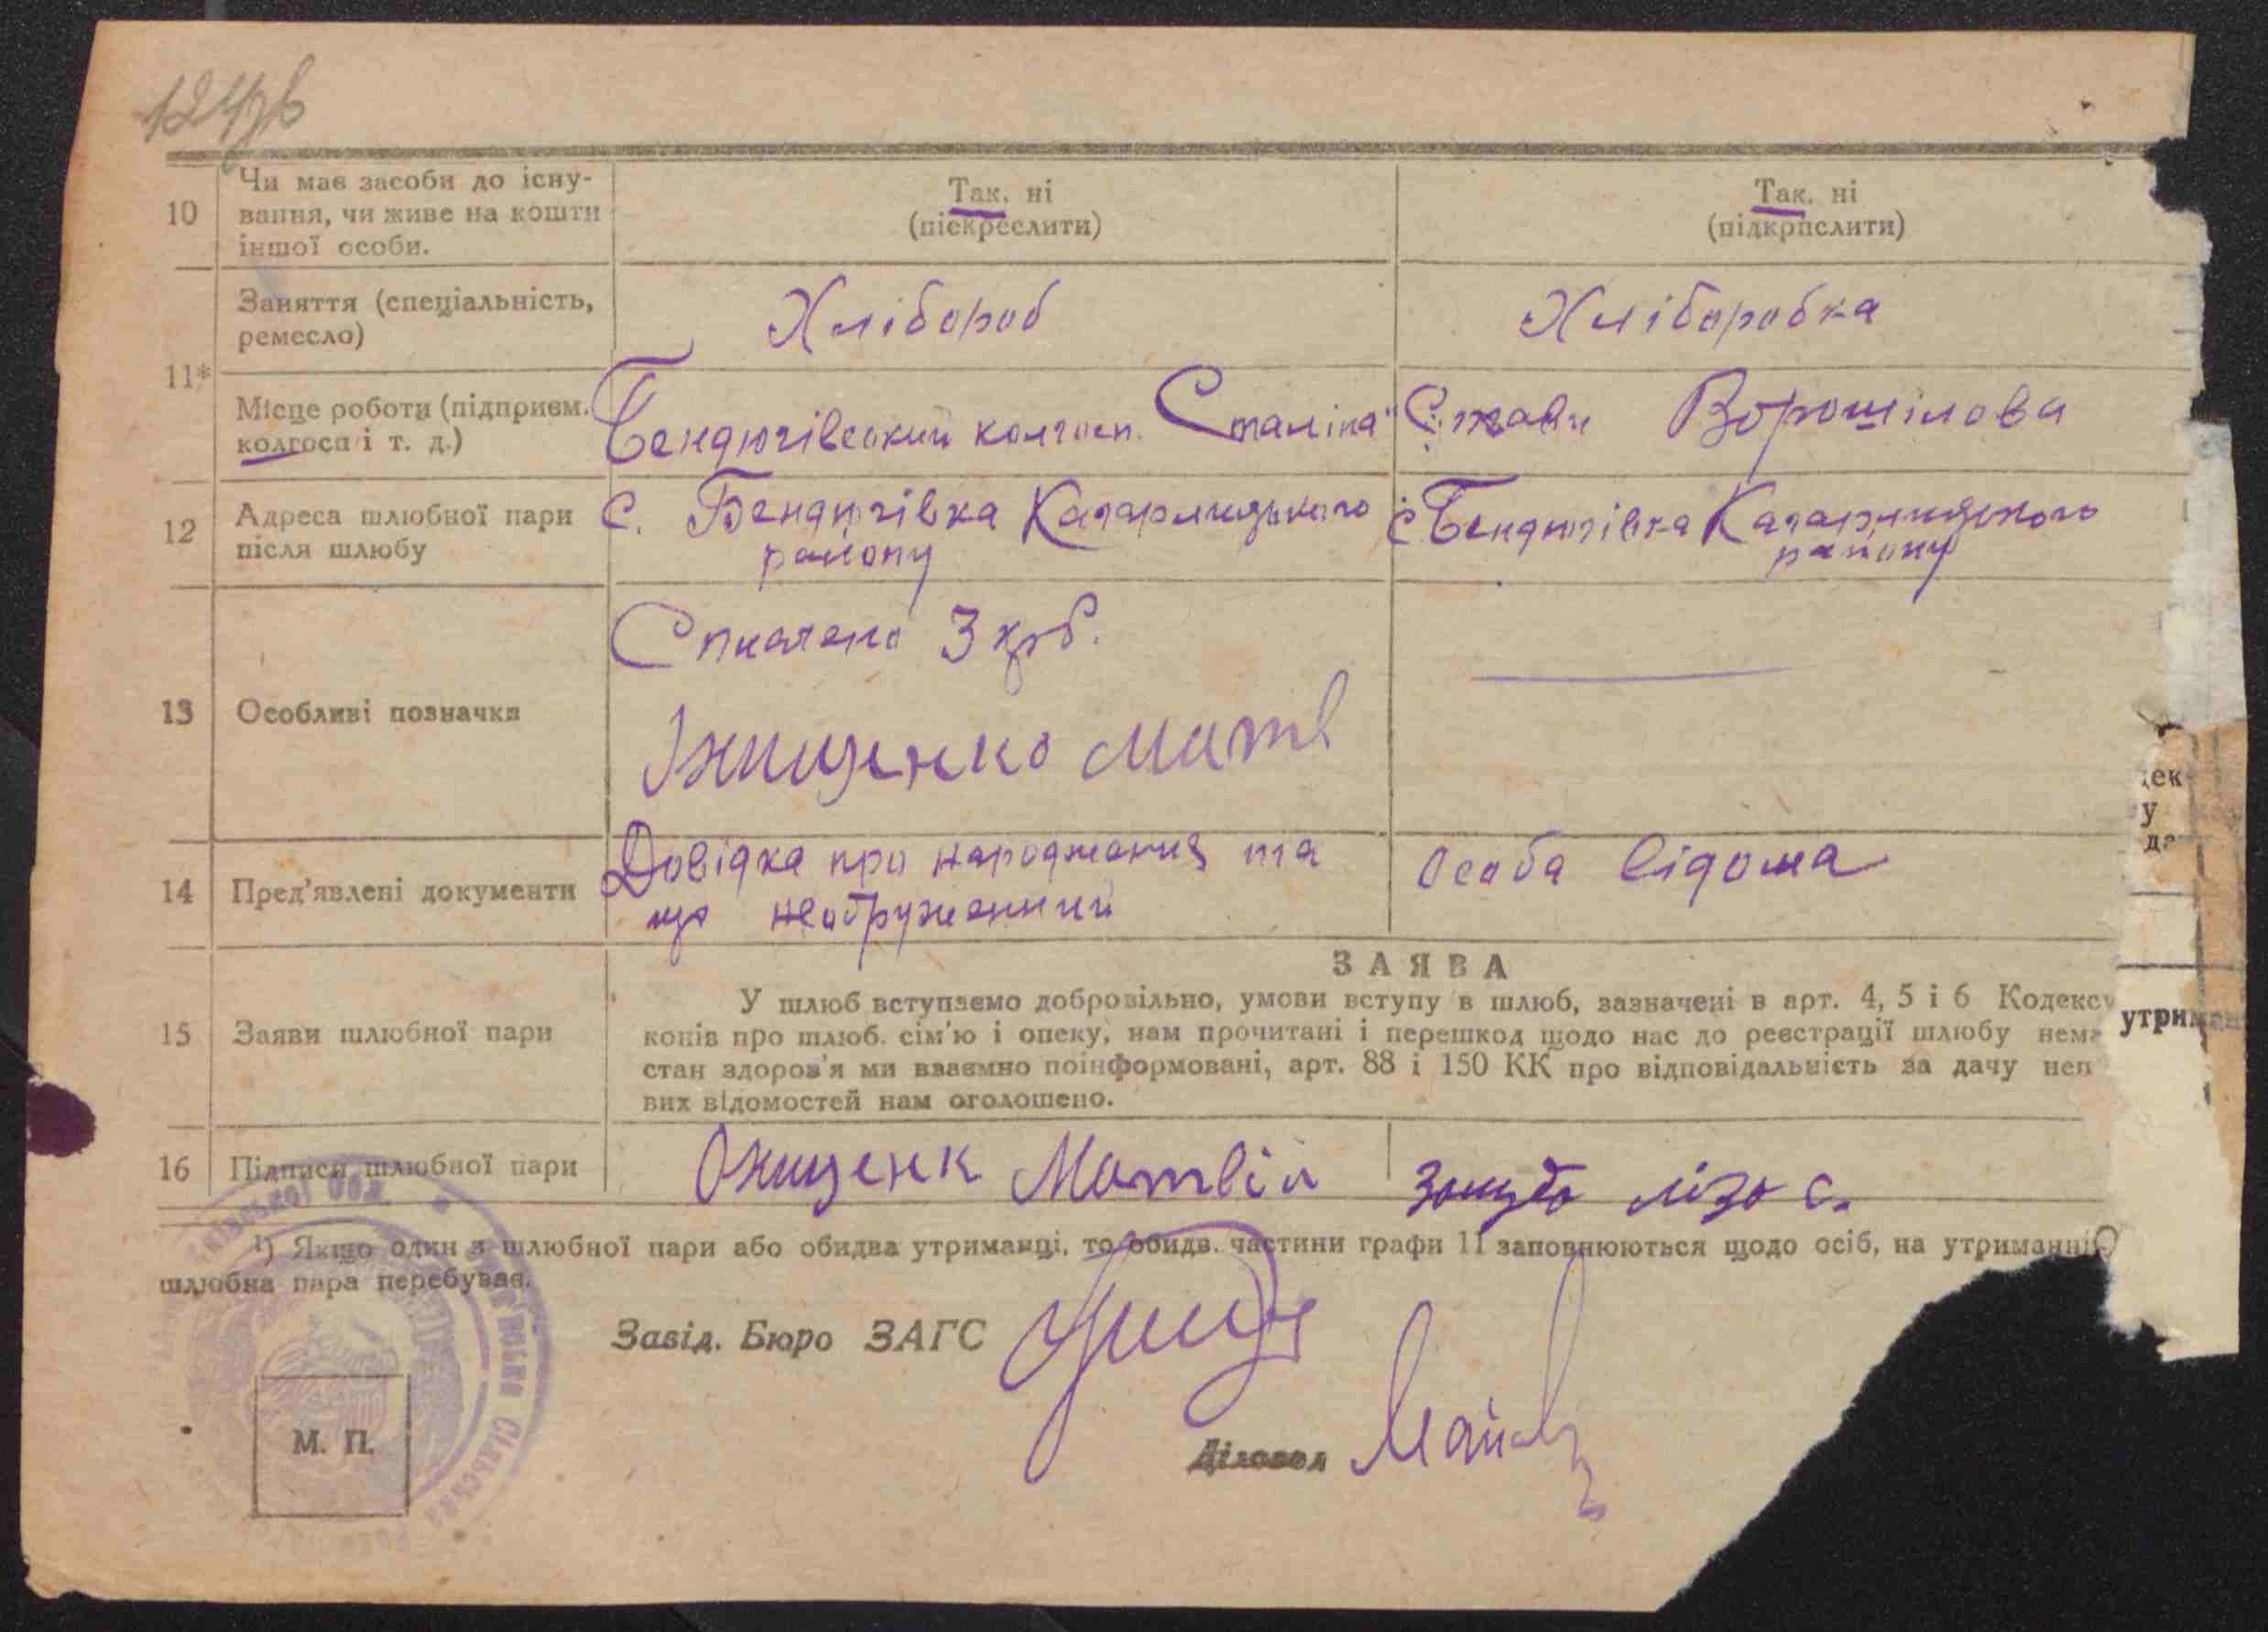 10
Чи має засоби до існу-
вання, чи живе на кошти
іншої особи.
Так. ні
(піскреслити)
Так. ні
(підкрпслити)
11*
Заняття (спеціальність,
ремесло)
Хлібороб
Хліборобка
Місце роботи (підприєм.
колгосп і т. д.)
Бендюгівський колгосп. Сталіна"
Ворошілова
12
Адреса шлюбної пари
після шлюбу
С. Бендюгівка Кагарлицького
району
с. Бендюгівка Кагарлицького
району
13
Особливі позначки
Сплачено 3 крб.
14
Пред'явлені документи
Довідка про народження та
що неодружений
Особа відома
15
Заяви шлюбної пари
ЗАЯВА
У шлюб вступаємо добровільно, умови вступу в шлюб, зазначені в арт. 4, 5 і 6 Кодексу
конів про шлюб. сім'ю і опеку, нам прочитані і перешкод щодо нас до реєстрації шлюбу нема
стан здоров'я ми взаємно поінформовані, арт. 88 і 150 КК про відповідальність за дачу неп
вих відомостей нам оголошено.
16
Підписи шлюбної пари
Онищенк Матвій
ліза с.
¹) Якщо один з шлюбної пари або обидва утриманці, то обидв. частини графи 11 заповнюються щодо осіб, на утриманні
шлюбна пара перебуває.
Завід. Бюро ЗАГС
Діловод
М. П.